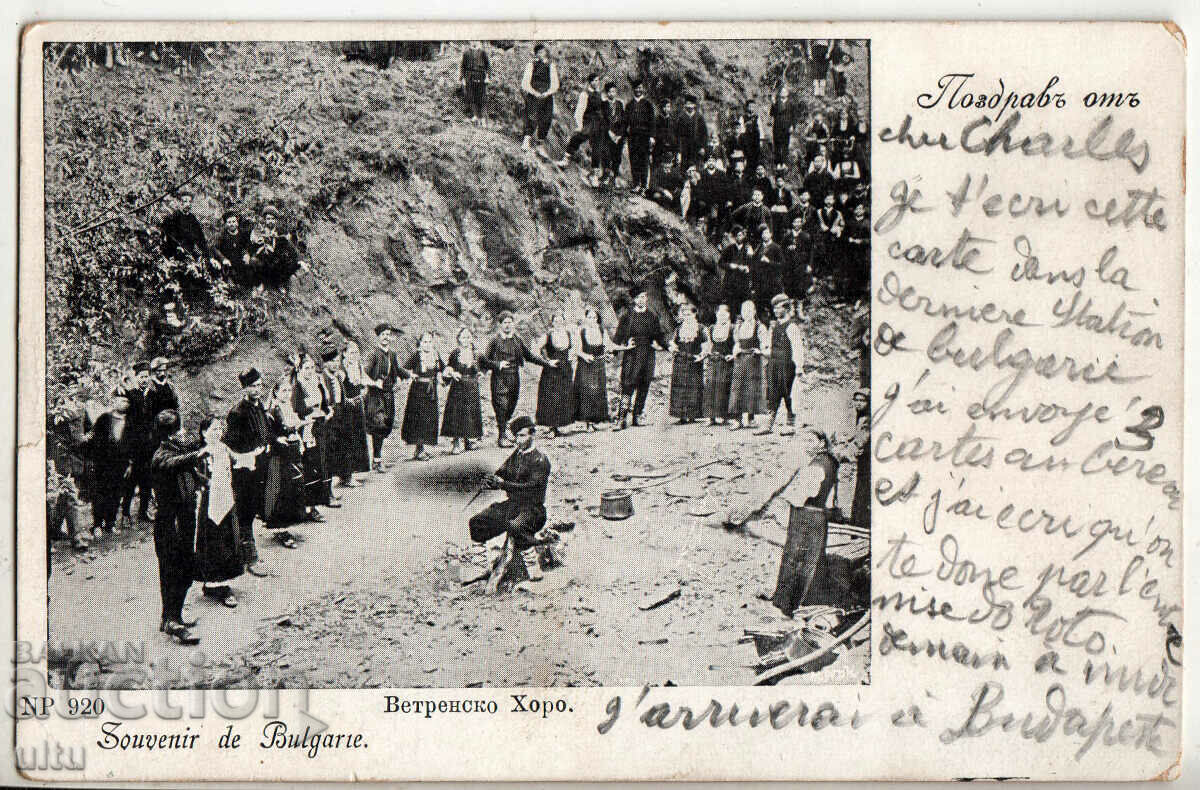 Поздравъ отъ
cher Charles
je t'ecri cette
carte dans la
derniere Station
de bulgarie
j'ai envoyé 3
cartes au
et j'ai ecri qu'on
te done par l'
demain a
j'arriverai à Budapeste
NP 920
Ветренско Хоро.
Souvenir de Bulgarie.
БАЛКАН
auction
ultu